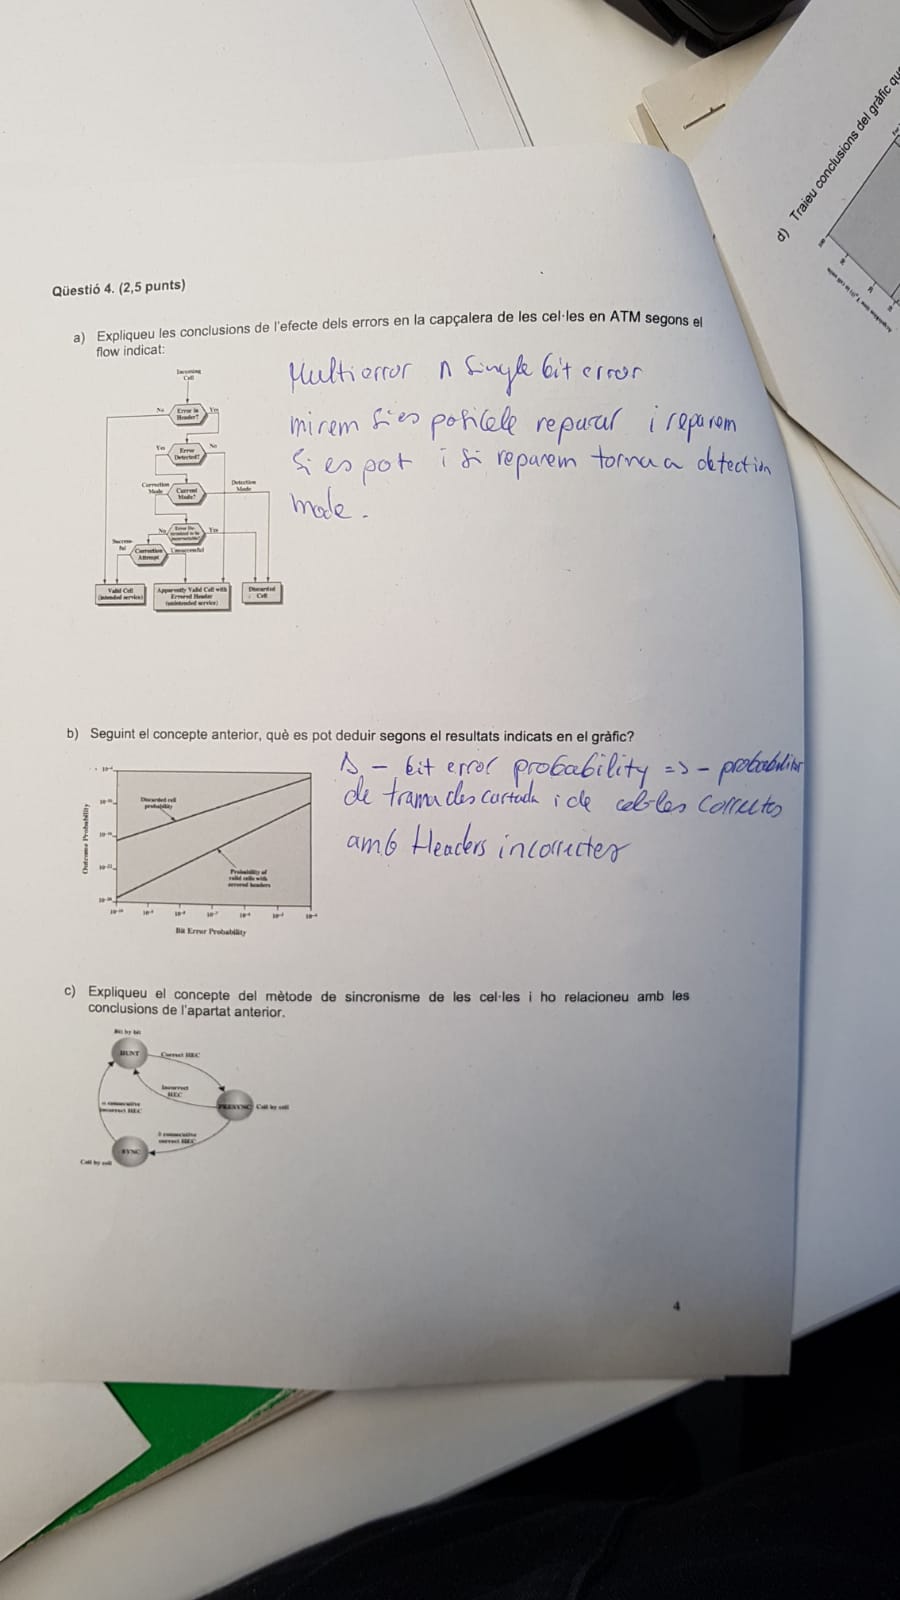 d) Traieu conclusions del gràfic que
Qüestió 4. (2,5 punts)
a) Expliqueu les conclusions de l'efecte dels errors en la capçalera de les cel·les en ATM segons el
flow indicat:
Incoming
Cell
No
Error in
Header?
Yes
Yes
Error
Detected?
No
Correction
Mode
Current
Mode?
Detection
Mode
No
Yes
Success-
ful
Correction
Attempt
Unsuccessful
Valid Cell
(intended service)
Apparently Valid Cell with
Errored Header
(unintended service)
Discarded
Cell
Multierror n Single bit error
mirem si es posible reparar i reparem
Si es pot i si reparem torna a detection
mode.
b) Seguint el concepte anterior, què es pot deduir segons el resultats indicats en el gràfic?
Outcome Probability
Discarded cell
probability
Probability of
valid cells with
errored headers
Bit Error Probability
- bit error probability => - probabilitat
de trama descartada i de cel·les correctes
amb Headers incorrectes
c) Expliqueu el concepte del mètode de sincronisme de les cel·les i ho relacioneu amb les
conclusions de l'apartat anterior.
Bit by bit
HUNT
Correct HEC
Incorrect
HEC
PRESYNC
Cell by cell
consecutive
incorrect HEC
consecutive
correct HEC
SYNC
Cell by cell
4